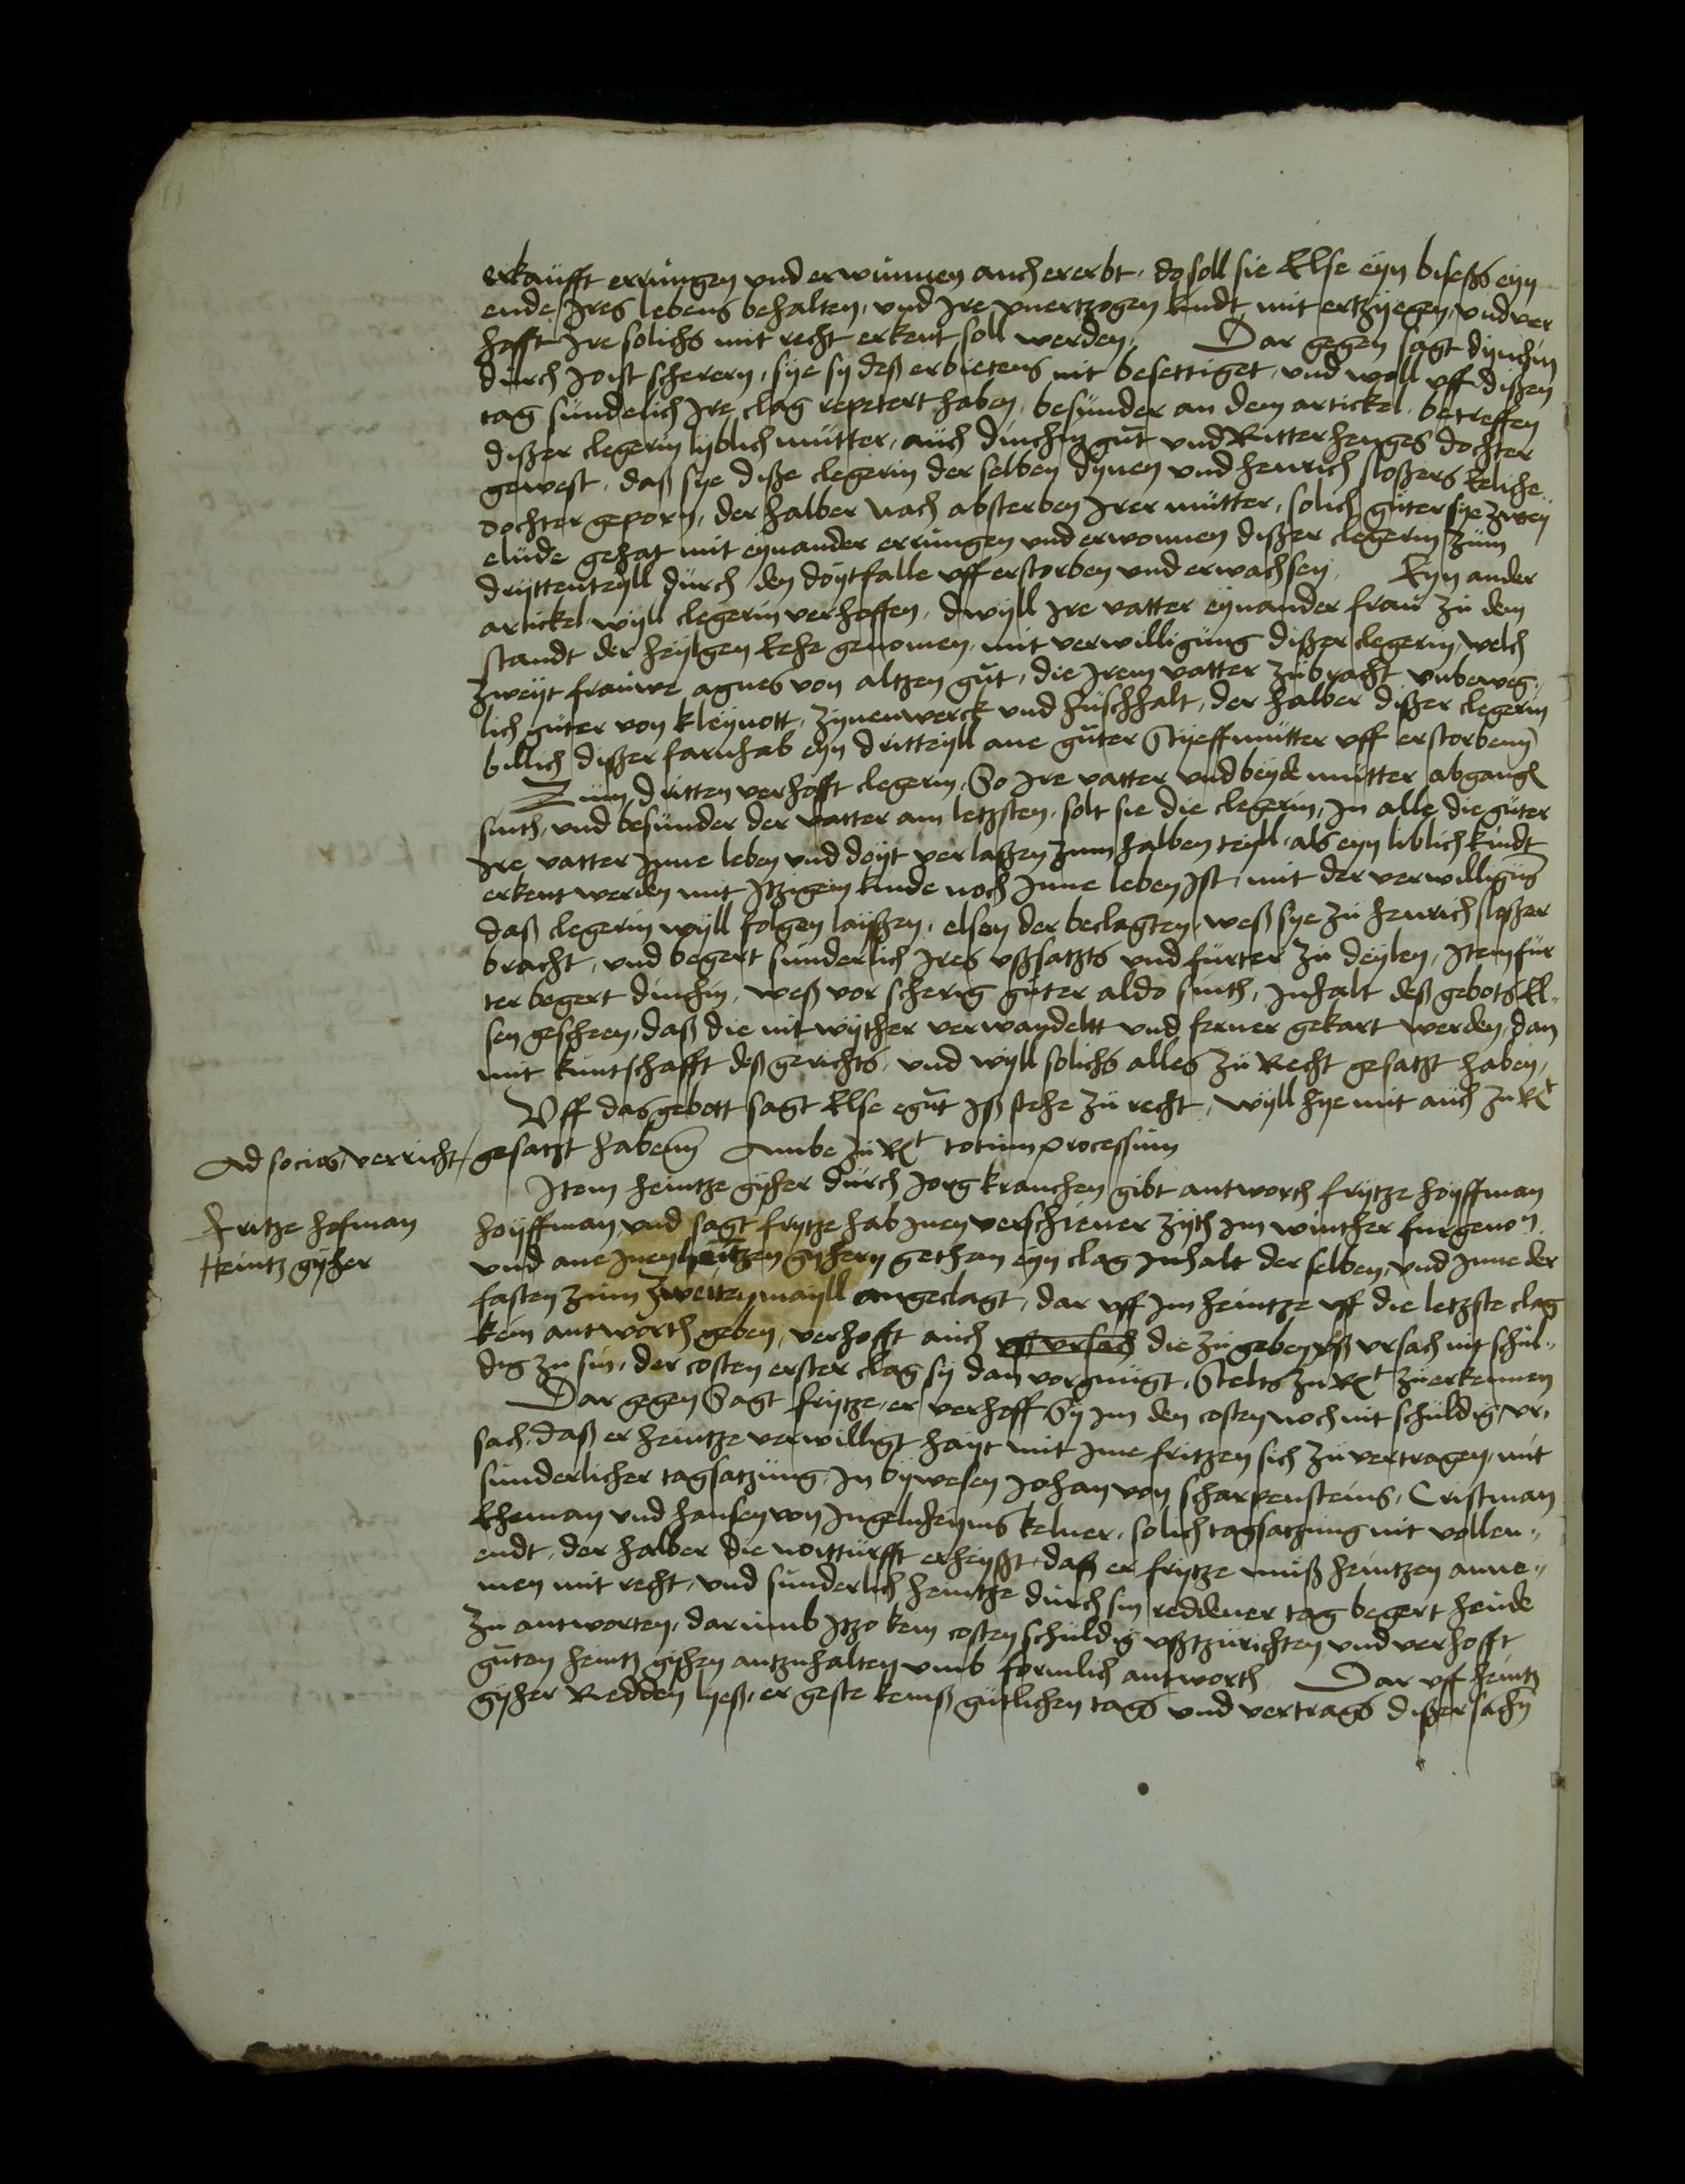 erkaufft errungen vnd erwunnen auch ererbt, do soll sie Else eyn biseßs eyn
ende Jres lebens behalten, vnd Jre vnertzogen kindt mit ertzyegen, vnd ver
hofft Jre solichs mit recht erkent soll werden, Dar gegen sagt dynchin
durch Joist scherern, sye sy deß erbietens nit besettiget, vnd woll vff dißen
tag sunderlich Jre clag repetert haben, besunder an dem artickel, betreffen
dißer clegerin lyblich mutter, auch dinchin gut vnd Ritter henges dochter
gewest, daß sye diße clegerin der selben dynen vnd henrich sloßers Eeliche
dochter geporn, der halber nach absterben Jrer mutter, solich guter sye zwey
elude gehat mit eynander errungen vnd erwonnen dißer clegerin zum
dryttenteyll durch den doytfalle vff erstorben vnd erwachsen, Eyn ander
artickel wyll clegerin verhoffen, dwyll Jre vatter eynander frau zu dem
standt der heylgen Eehe genomen, mit verwilligung dißer clegerin, welch
zweyt frauwe agnes von altzen gut, die Jrem vatter zubracht vnbeweg„
lich guter von kleynott, zynenwerck vnd huschhalt, der halber dißer clegerin
billich dißer farnhab eyn dritteyll ane guter Styeffmutter vff erstorben
Zum dritten verhofft clegerin, So Jre vatter vnd beyde mutter abgangen
sinth, vnd besunder der vatter am letzsten, solt sie die clegerin, Jn alle die guter
Jre vatter Jnne leben vnd doyt verlaßen zum halben teyll als eyn liblich kindt
erkent werden mit Jtzigem kinde noch Jnne leben Jst, mit der verwilligung
daß clegerin wyll folgen laißen, elsen der beclagten, weß sye zu henrich sloßer
bracht, vnd begert sunderlich Jres vßsatzts vnd furter zu deylen, Jtem fur
ter begert dinchin, weß vor scherig guter aldo sinth, Jnhalt deß gebots El„
sen gescheen, daß die nit wyther verwandeltt vnd ferner gekart werden, dan
mit kuntschafft deß gerichts, vnd wyll solichs alles zu Recht gesatzt haben,
Vff das gebott sagt Else egut Jß stehe zu recht, wyll hye mit auch zu Rt
Ad socios, verricht, gesatzt haben Ambe zu Rt totum processum
Jtem heintze gyßer durch Jorg kranchen gibt antworth frytze hoyffman
Fritze hofman
Heintz gyßer
hoyffman, vnd sagt frytze hab Jnen verschiener zyth im winther furgenomn
vnd ane Jnen heintzen gyßern gethan eyn clag Jnhalt der selben, vnd Jnne der
fasten zum zweiten mayll angeclagt, dar vff Jm heintze vff die letzste clag
kein antworth geben, verhofft auch vß vrsach die zu geben vß vrsach nit schul„
dig zu sin, der costen erster clag sy dan vorgnugt, Stelts zu Rt zu erkennen
Dar gegen Sagt frytze, er verhoff Sy Jm den costen noch nit schuldig, vr„
sach, daß er heintze verwilligt hayt mit Jme fritzen sich zu vertragen, mit
sunderlicher tagsatzung Jn bywesen Johan von scharpensteins, Cristman
Eheman vnd hansen von Jngelnheyms kelner, solich tagsatzung nit vollen„
endt, der halber die nottturfft erheyßt, daß er frytze muß heintzen anne„
men mit recht, vnd sunderlich heintze durch sin reddener tag begert heude
zu antworten, darumb Jtzo kein costen schuldig vßtzurichten, vnd verhofft
guten heintz gyßen antzuhalten vmb formlich antworth, Dar vff heintz
gyßer Redden lyeß, er geste keinß gutlichen tags vnd vertrags dißer sachen